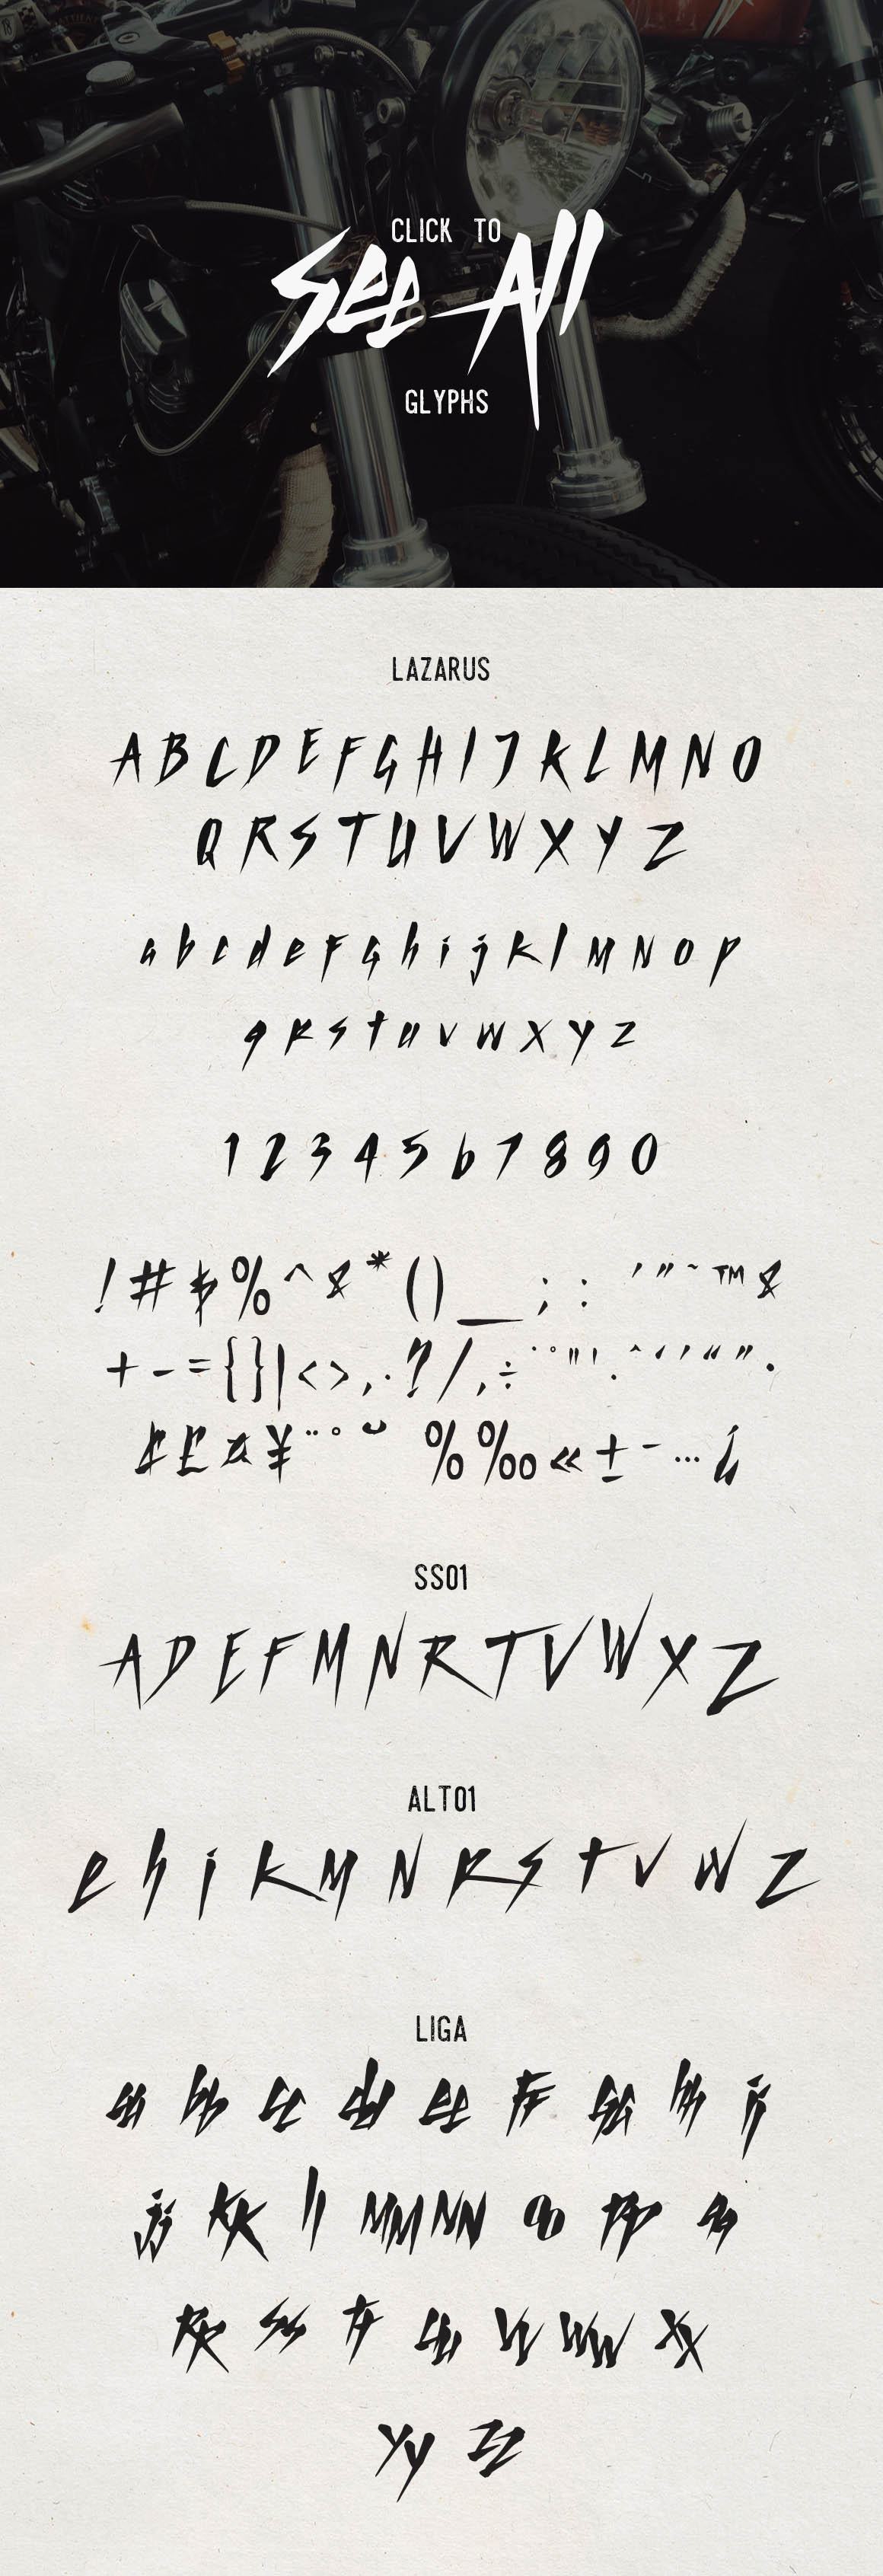 CLICK TO
See All
GLYPHS
LAZARUS
A B C D E F G H I J K L M N O
Q R S T U V W X Y Z
a b c d e f g h i j k l m n o p
q r s t u v w x y z
1 2 3 4 5 6 7 8 9 0
! # $ % ^ & * ( ) _ ; : ' " ~ ™ &
+ - = { } | < > , . ? / , ÷ ˙ ° " ' . ^ ‘ ’ “ ” ·
£ ¤ ¥ ¨ ° ˘ % ‰ « ± - … ¿
SS01
A D E F M N R T V W X Z
ALT01
e h i k m n r s t v w z
LIGA
aa bb cc dd ee ff gg hh ii
jj kk ll mm nn oo pp qq
rr ss tt uu vv ww xx
yy zz